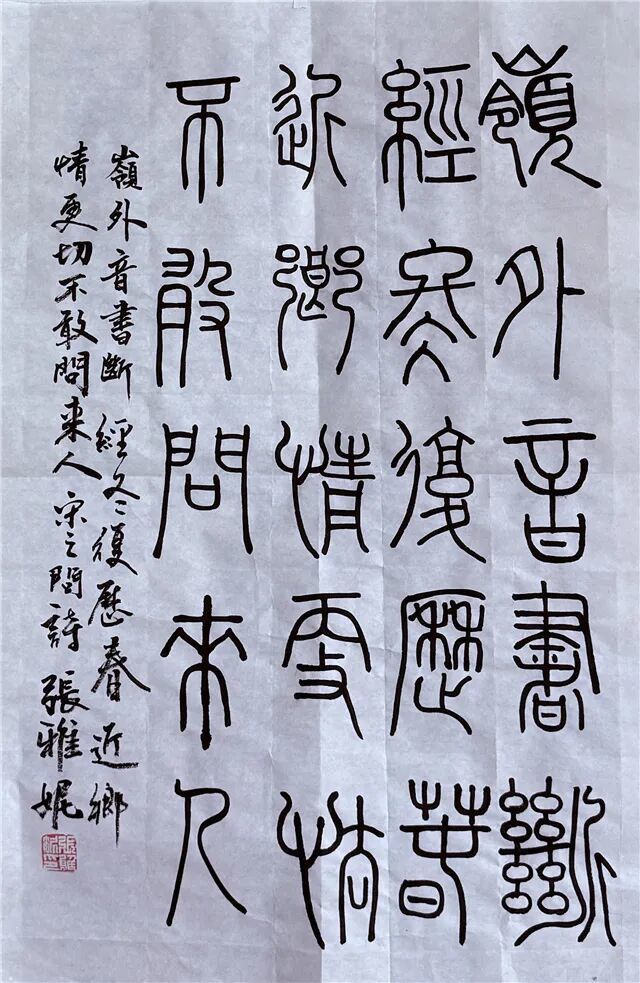 嶺外音書斷
經冬復歷春
近鄉情更怯
不敢問來人
嶺外音書斷經冬復歷春近鄉
情更切不敢問來人宋之問詩張雅妮